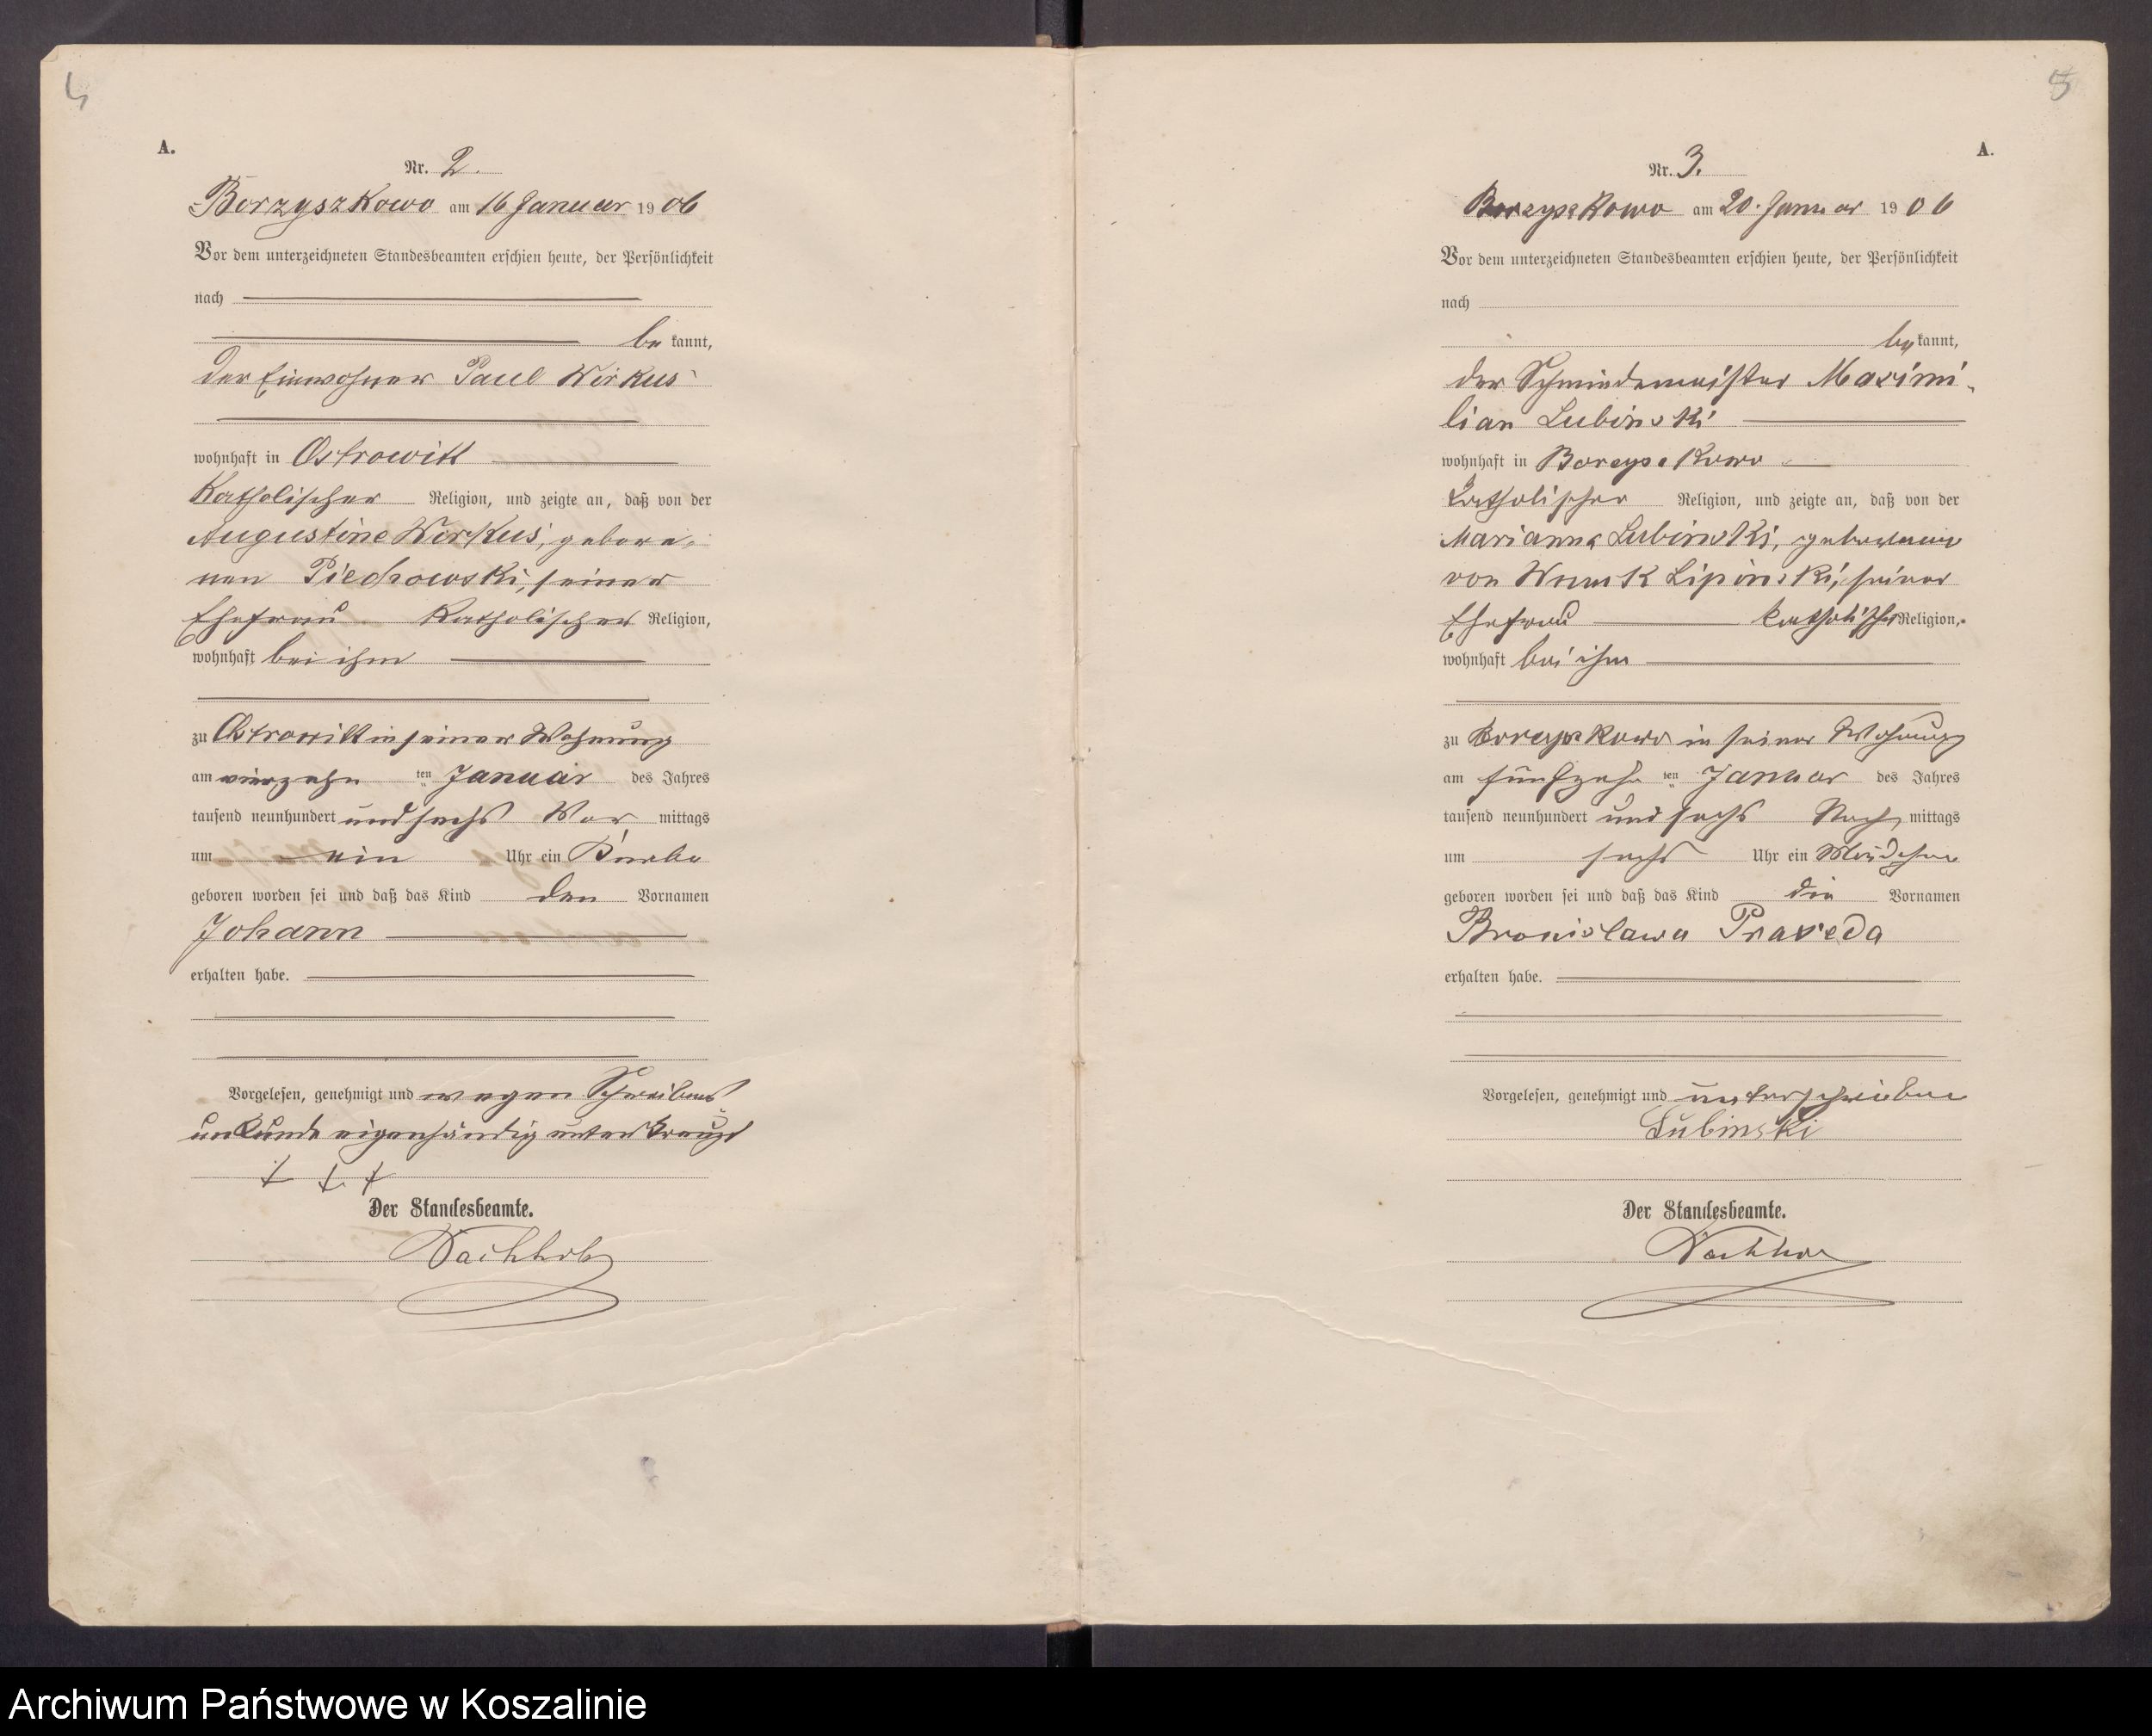 4
A.
Nr. 2.
Borzyszkowo am 16 Januar 1906
Vor dem unterzeichneten Standesbeamten erschien heute, der Persönlichkeit
nach
be kannt,
der Einwohner Paul Wirkus
wohnhaft in Ostrowitt
katholischer Religion, und zeigte an, daß von der
Augustine Wirkus, gebore-
nen Piechowski, seiner
Ehefrau katholischer Religion,
wohnhaft bei ihm
zu Ostrowitt in seiner Wohnung
am vierzehn ten Januar des Jahres
tausend neunhundert und sechs Vor mittags
um ein Uhr ein Knabe
geboren worden sei und daß das Kind den Vornamen
Johann
erhalten habe.
Vorgelesen, genehmigt und wegen Schreibens
unkunde eigenhändig unterkreuzt
+ + +
Der Standesbeamte.
5
A.
Nr. 3.
Borzyszkowo am 20. Januar 1906
Vor dem unterzeichneten Standesbeamten erschien heute, der Persönlichkeit
nach
be kannt,
der Schmiedemeister Maximi-
lian Lubinski
wohnhaft in Borzyszkowo
katholischer Religion, und zeigte an, daß von der
Marianna Lubinski, geborenen
von Wnuk Lipinski, seiner
Ehefrau katholischer Religion,
wohnhaft bei ihm
zu Borzyszkowo in seiner Wohnung
am fünfzehn ten Januar des Jahres
tausend neunhundert und sechs Nach mittags
um sechs Uhr ein Mädchen
geboren worden sei und daß das Kind die Vornamen
Bronislawa Praxeda
erhalten habe.
Vorgelesen, genehmigt und unterschrieben
Lubinski
Der Standesbeamte.
Archiwum Państwowe w Koszalinie